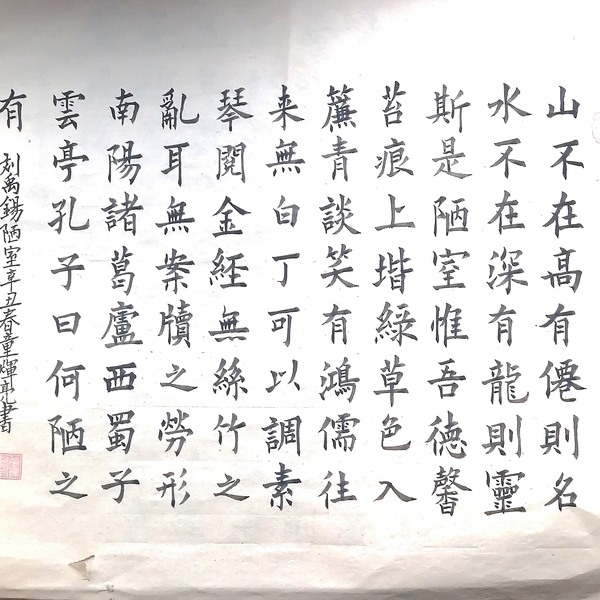 山不在高有僊則名
水不在深有龍則靈
斯是陋室惟吾德馨
苔痕上堦綠草色入
簾青談笑有鴻儒往
来無白丁可以調素
琴閱金経無絲竹之
亂耳無案牘之勞形
南陽諸葛廬西蜀子
雲亭孔子曰何陋之
有
刘禹錫陋室辛丑春童煇亮書